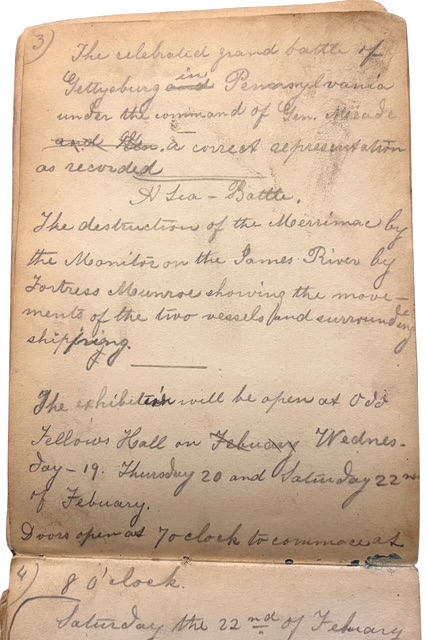 3)
The celebrated grand battle of
Gettysburg and in Pennsylvania
under the command of Gen. Meade
and Gen. A correct representation
as recorded
A Sea-Battle.
The destruction of the Merrimac by
the Monitor on the James River by
Fortress Munroe showing the move-
ments of the two vessels and surrounding
shipping.
The exhibition will be open at Odd
Fellows Hall on Febuary Wednes-
day - 19. Thursday 20 and Saturday 22nd
of Febuary.
Doors open at 7 o clock to commace at
4)
8 O'clock.
Saturday the 22nd of Febuary